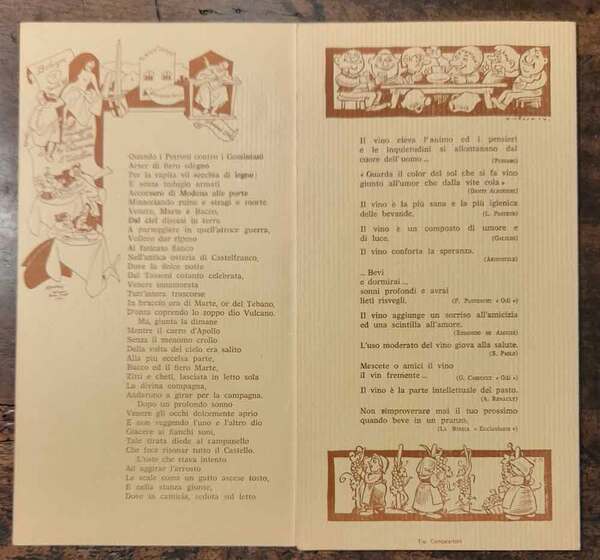 Quando i Petroni contro i Geminiani
Arser di fiero sdegno
Per la rapita vil secchia di legno
E senza indugio armati
Accorsero di Modena alle porte
Minacciando ruine e stragi e morte
Venere, Marte e Bacco,
Dal ciel discesi in terra
A parteggiare in quell'atroce guerra,
Vollero dar riposo
Al faticato fianco
Nell'antica osteria di Castelfranco,
Dove la dolce notte
Dal Tassoni cotanto celebrata,
Venere innamorata
Tutt'intera trascorse
In braccio ora di Marte, or del Tebano,
D'onta coprendo lo zoppo dio Vulcano.
Ma, giunta la dimane
Mentre il carro d'Apollo
Senza il menomo crollo
Della volta del cielo era salito
Alla più eccelsa parte,
Bacco ed il fiero Marte,
Zitti e cheti, lasciata in letto sola
La divina compagna,
Andarono a girar per la campagna.
Dopo un profondo sonno
Venere gli occhi dolcemente aprio
E non veggendo l'uno e l'altro dio
Giacere ai fianchi suoi,
Tale tirata diede al campanello
Che fece risonar tutto il Castello.
L'oste che stava intento
Ad aggirar l'arrosto
Le scale come un gatto ascese tosto,
E nella stanza giunse,
Dove in camicia, seduta sul letto
Il vino eleva l'animo ed i pensieri
e le inquietudini si allontanano dal
cuore dell'uomo ...
« Guarda il color del sol che si fa vino
giunto all'umor che dalla vite cola »
(Dante Alighieri)
Il vino è la più sana e la più igienica
delle bevande.
(L. Pasteur)
Il vino è un composto di umore e
di luce.
(Galileo)
Il vino conforta la speranza.
(Aristotele)
... Bevi
e dormirai ...
sonni profondi e avrai
lieti risvegli.
« Odi »)
Il vino aggiunge un sorriso all'amicizia
ed una scintilla all'amore.
(Edmondo de Amicis)
L'uso moderato del vino giova alla salute.
(S. Paolo)
Mescete o amici il vino
il vin fremente ...
(G. Carducci « Odi »)
Il vino è la parte intellettuale del pasto.
(A. Renault)
Non rimproverare mai il tuo prossimo
quando beve in un pranzo.
(La Bibbia « Ecclesiaste »)
Tip. Compositori